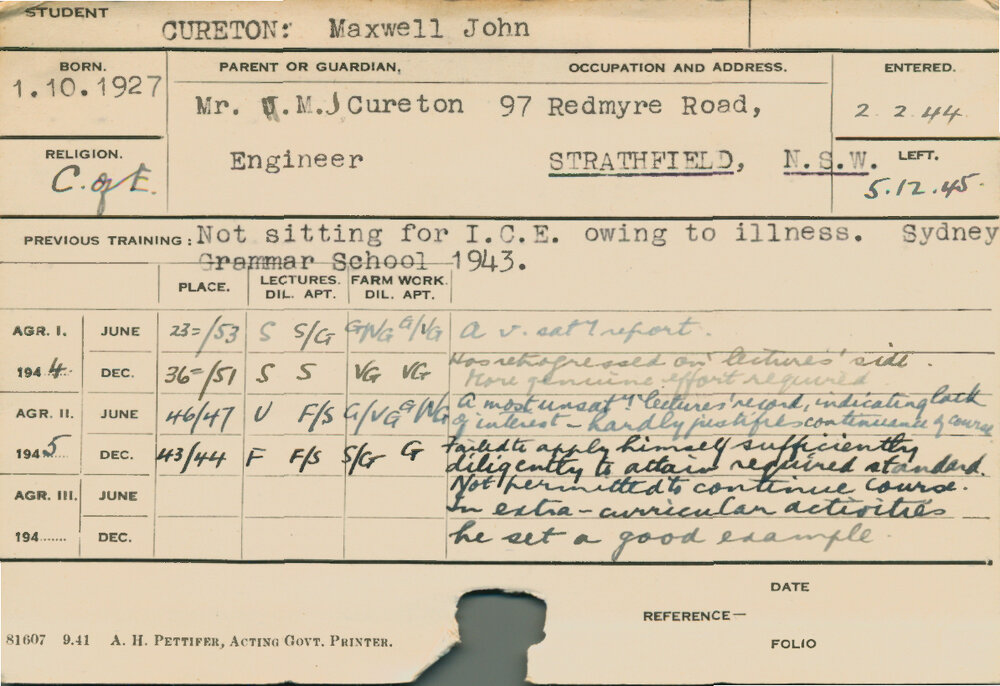 STUDENT
CURETON: Maxwell John
BORN. PARENT OR GUARDIAN, OCCUPATION AND ADDRESS. ENTERED.
1.10.1927 Mr. M.J Cureton 97 Redmyre Road, 2 2.44
RELIGION. Engineer STRATHFIELD, N.S.W. LEFT.
C. of E. 5.12.45.
PREVIOUS TRAINING: Not sitting for I.C.E. owing to illness. Sydney
Grammar School 1943.
PLACE. LECTURES. FARM WORK.
DIL. APT. DIL. APT.
AGR. I. JUNE 23=/53 S S/G G/VG G/VG A v. sat y report.
1944. DEC. 36=/51 S S VG VG Has retrogressed on 'lectures' side.
More genuine effort required
AGR. II. JUNE 46/47 U F/S G/VG G/VG A most unsat y. 'lectures' record, indicating lack
of interest – hardly justifies continuance of course
1945 DEC. 43/44 F F/S S/G G Failed to apply himself sufficiently
diligently to attain required standard.
AGR. III. JUNE Not permitted to continue course.
In extra-curricular activities
194...... DEC. he set a good example.
DATE
REFERENCE—
FOLIO
81607 9.41 A. H. PETTIFER, ACTING GOVT. PRINTER.